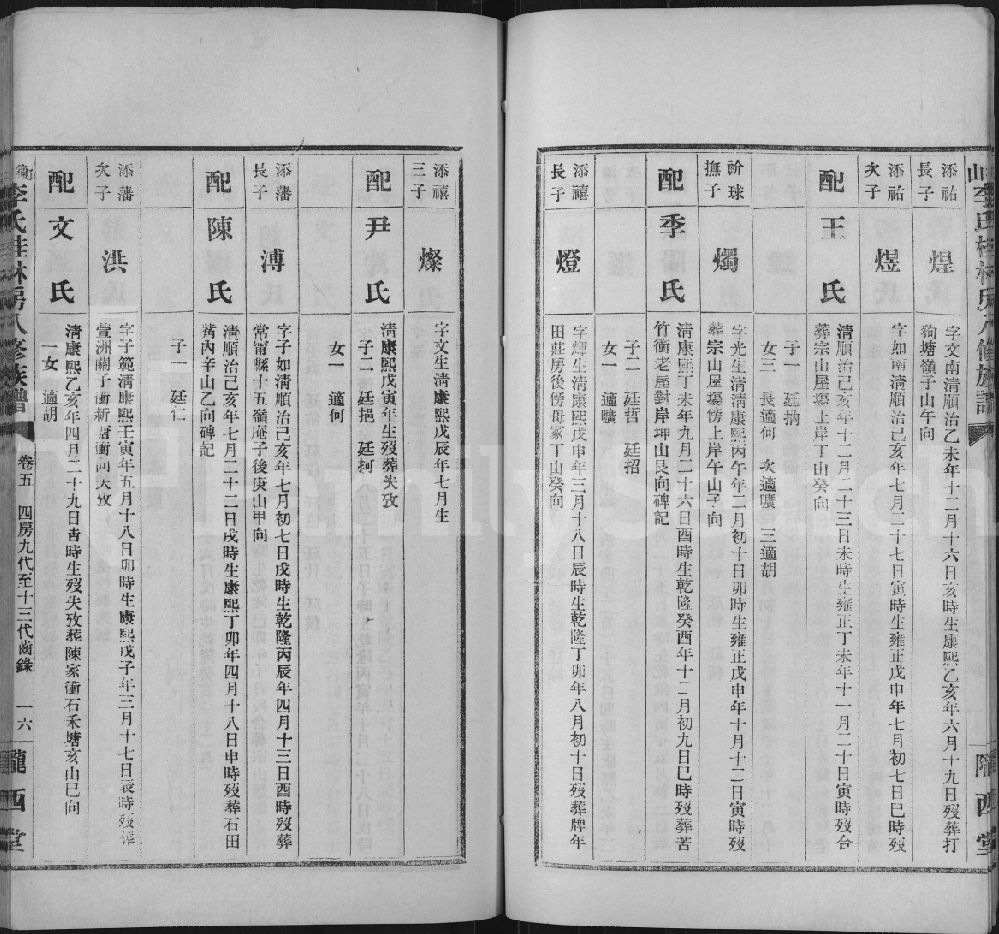 添祐長子
煌
字文南清順治乙未年十二月十六日亥時生康熙乙亥年六月十九日歿葬打
狗塘嶺子山午向
添祐次子
煜
字如南清順治己亥年七月二十七日寅時生雍正戊申年七月初七日巳時歿
配王氏
清順治己亥年十二月二十三日未時生雍正丁未年十一月二十日寅時歿合
葬宗山屋塲上岸丁山癸向
子一 廷抐
女三 長適何 次適曠 三適胡
玠球撫子
燭
字光生清康熙丙午年二月初十日卯時生雍正戊申年十月十二日寅時歿
葬宗山屋塲傍上岸午山子向
配季氏
清康熙丁未年九月二十六日酉時生乾隆癸酉年十二月初九日巳時歿葬苦
竹衝老屋對岸坤山艮向碑記
子二 廷哲 廷招
女一 適曠
添禧長子
燈
字輝生清康熙戊申年三月十八日辰時生乾隆丁卯年八月初十日歿葬牌年
田莊房後傍母冢丁山癸向
隴西堂
添禧三子
燦
字文生清康熙戊辰年七月生
配尹氏
清康熙戊寅年生歿葬失攷
子二 廷挹 廷柯
女一 適何
添藩長子
溥
字子如清順治己亥年七月初七日戌時生乾隆丙辰年四月十三日酉時歿葬
常甯縣十五嶺庵子後庚山甲向
配陳氏
清順治己亥年七月二十二日戌時生康熙丁卯年四月十八日申時歿葬石田
觜內辛山乙向碑記
子一 廷仁
添藩次子
洪
字子範清康熙壬寅年五月十八日卯時生康熙戊子年三月十七日辰時歿葬
萱洲關子衝新塘衝向失攷
配文氏
清康熙乙亥年四月二十九日酉時生歿失攷葬陳家衝石禾塘亥山巳向
一女 適胡
衡山李氏桂林房八修族譜 卷五 四房九代至十三代齒錄 一六 隴西堂